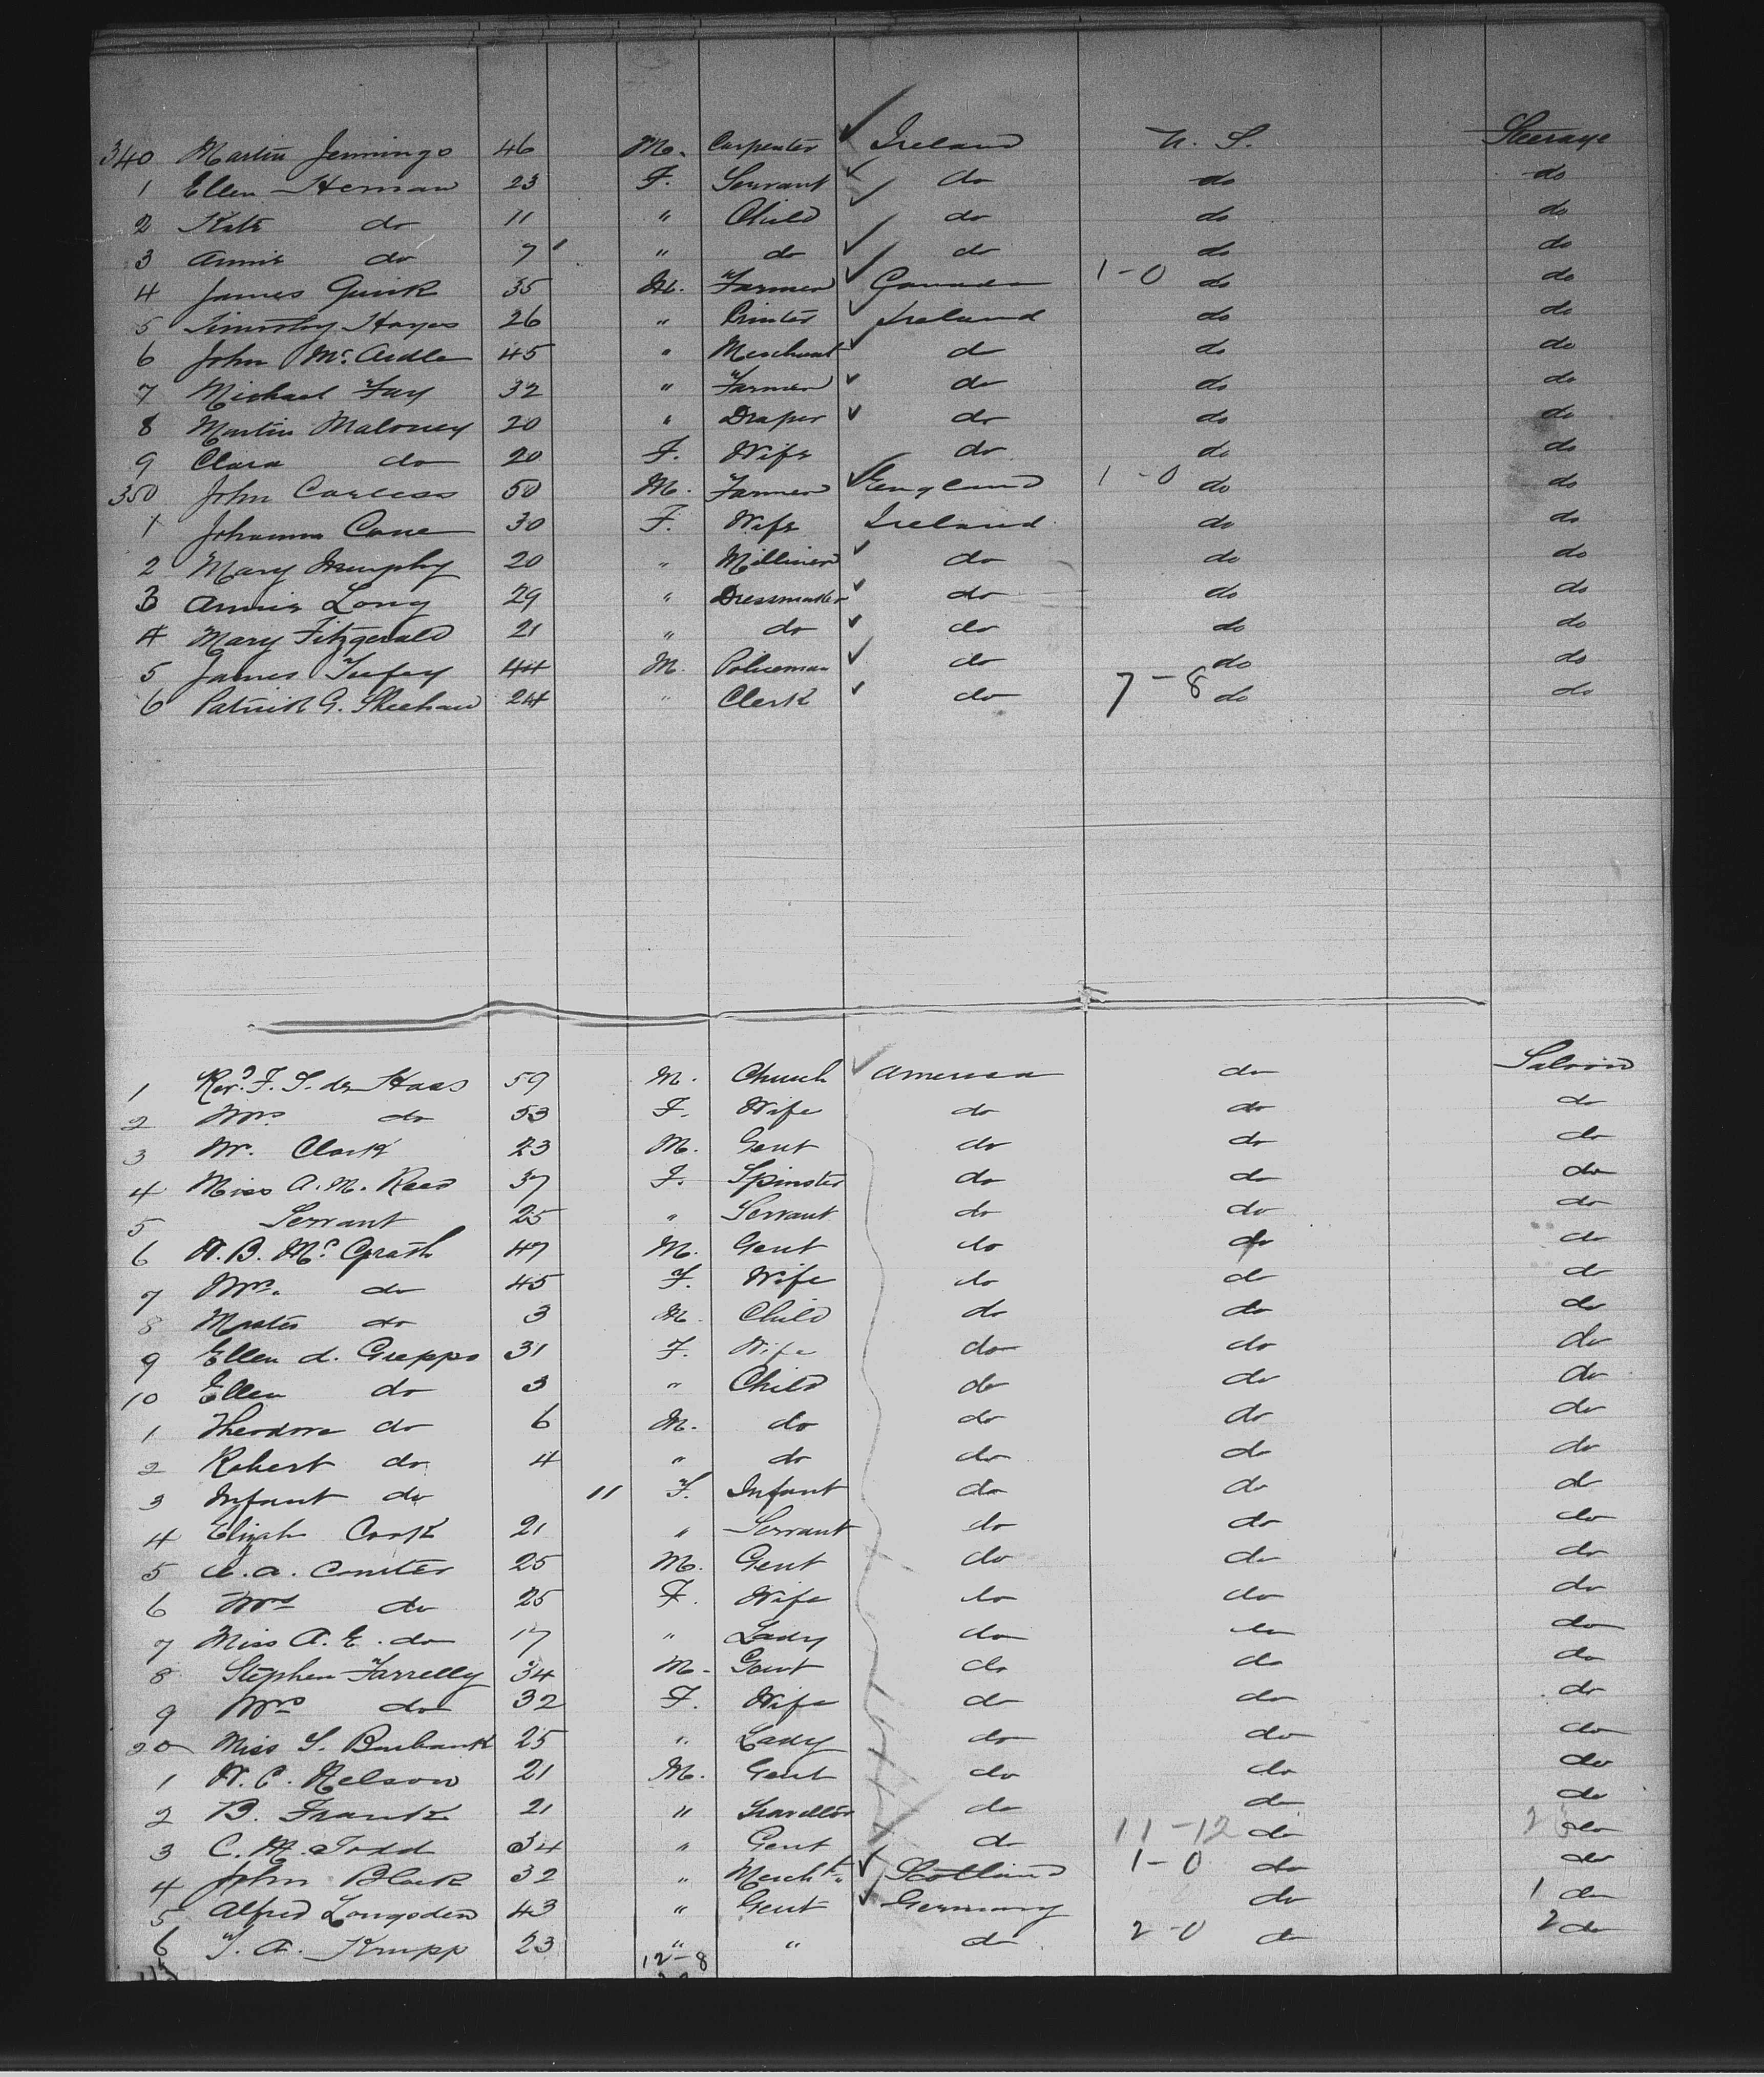 340 Martin Jennings 46 M. Carpenter Ireland U. S. Steerage
1 Ellen Hernan 23 F. Servant do do do
2 Kate do 11 " Child do do do
3 Annie do 7 " do do do do
4 James Quirk 35 M. Farmer Canada 1-0 do do
5 Timothy Hayes 26 " Printer Ireland do do
6 John McArdle 45 " Merchant do do do
7 Michael Fay 32 " Farmer do do do
8 Martin Maloney 20 " Draper do do do
9 Clara do 20 F. Wife do do do
350 John Careless 50 M. Farmer England 1-0 do do
1 Johanna Cane 30 F. Wife Ireland do do
2 Mary Murphy 20 " Milliner do do do
3 Annie Long 29 " Dressmaker do do do
4 Mary Fitzgerald 21 " do do do do
5 James 44 M. Policeman do do do
6 Patrick G. Sheehan 24 " Clerk do 7-8 do do
1 Revd. F. S. de Haas 59 M. Church America do Saloon
2 Mrs do 53 F. Wife do do do
3 Mr. Clark 23 M. Gent do do do
4 Miss A. M. Reed 37 F. Spinster do do do
5 Servant 25 " Servant do do do
6 W. B. McGrath 47 M. Gent do do do
7 Mrs. do 45 F. Wife do do do
8 Master do 3 M. Child do do do
9 Ellen d. 31 F. Wife do do do
10 Ellen do 3 " Child do do do
1 Theodore do 6 M. do do do do
2 Robert do 4 " do do do do
3 Infant do 11 F. Infant do do do
4 Elizah Cook 21 " Servant do do do
5 A. 25 M. Gent do do do
6 Mrs do 25 F. Wife do do do
7 Miss A. E. do 17 " Lady do do do
8 Stephen Farrelly 34 M. Gent do do do
9 Mrs do 32 F. Wife do do do
20 Miss S. Burbank 25 " Lady do do do
1 W. C. Nelson 21 M. Gent do do do
2 B. Frank 21 " Traveller do do do
3 C. M. Todd 34 " Gent do 11-12 do do
4 John Black 32 " Mercht. Scotland 1-0 do do
5 Alfred Longsden 43 " Gent Germany do 1 do
6 A. Krupp 23 " " do 2-0 do 2 do
12-8